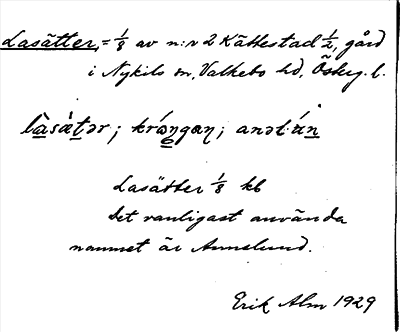 Lasätter, = 1/8 av n:r 2 Kättestad 1/2, gård
i Nykils sn, Valkebo hd, Österg. l.
làsǽtər; krǻŋgəŋ;
Lasätter 1/8 kb
Det vanligast använda
namnet är Annelund.
Erik Alm 1929